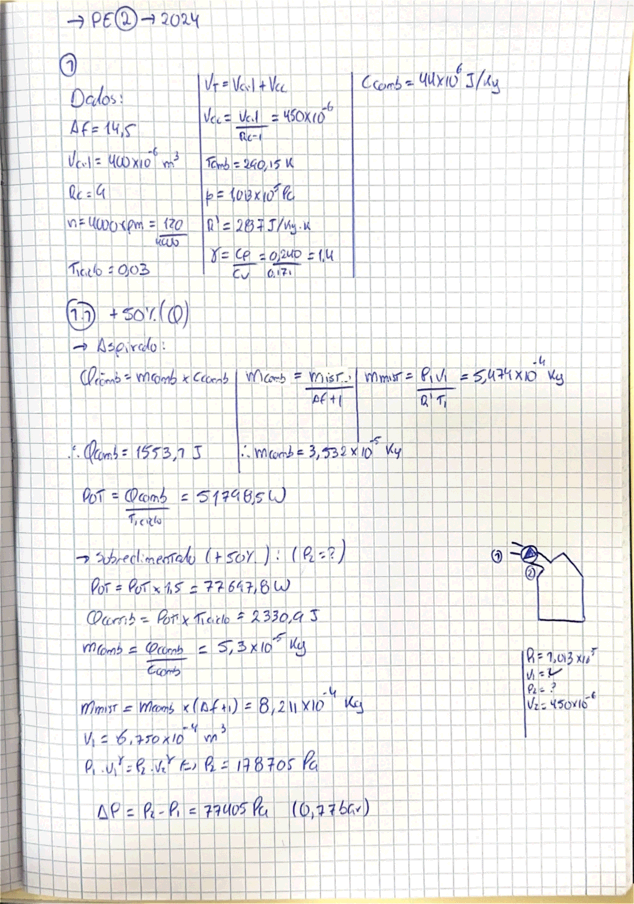 → PE ② → 2024
①
Dados:
Af = 14,5
Vcil = 400x10^-6 m³
Rc = 9
n = 4000 rpm = 120/4000
Tciclo = 0,03
VT = Vcil + Vcc
Vcc = Vcil/Rc-1 = 450x10^-6
Tamb = 290,15 K
p = 1,013x10^5 Pa
R' = 287 J/kg.K
γ = Cp/Cv = 0,240/0,171 = 1,4
Ccomb = 44x10^6 J/kg
1.1 +50% (Q)
→ Aspirado:
Qcomb = mcomb x Ccomb
mcomb = mist./Af+1
mmist = P1V1/R'T1 = 5,474x10^-4 Kg
∴ Qcomb = 1553,7 J
∴ mcomb = 3,532x10^-5 Kg
POT = Qcomb/Tciclo = 51798,5 W
→ Sobrealimentado (+50%): (P2=?)
POT = POT x 1,5 = 77697,8 W
Qcomb = POT x Tciclo = 2330,9 J
mcomb = Qcomb/Ccomb = 5,3x10^-5 Kg
mmist = mcomb x (Af+1) = 8,211x10^-4 Kg
V1 = 6,750x10^-4 m³
P1.V1^γ = P2.V2^γ (=) P2 = 178705 Pa
ΔP = P2 - P1 = 77405 Pa (0,77bar)
①
②
P1 = 1,013x10^5
V1 = ✓
P2 = ?
V2 = 450x10^-6